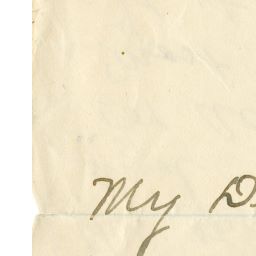 My D